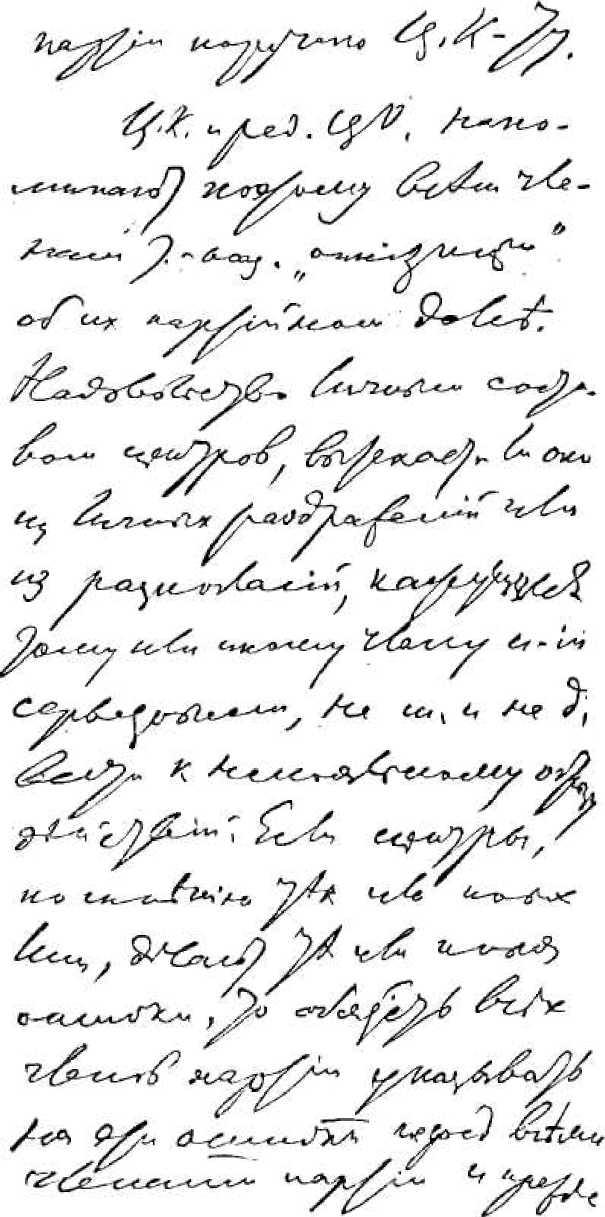 партіи поручено Ц.К-ту.
Ц.К. и ред. ЦО. напо-
минают поэтому всѣм чле-
нам т.-наз. „оппозиціи"
об их партійном долгѣ.
Недовольство личным соста-
вом центров, вытекает ли оно
из личных раздражений или
из разногласій, кажущихся
тому или иному члену п-іи
серьезными, не м. и не д.
вести к нелояльному образу
дѣйствій. Если центры,
по мнѣнію тѣх или иных
лиц, дѣлают тѣ или иныя
ошибки, то обязанность всѣх
членов партіи указывать
на эти ошибки перед всѣми
членами партіи и прежде